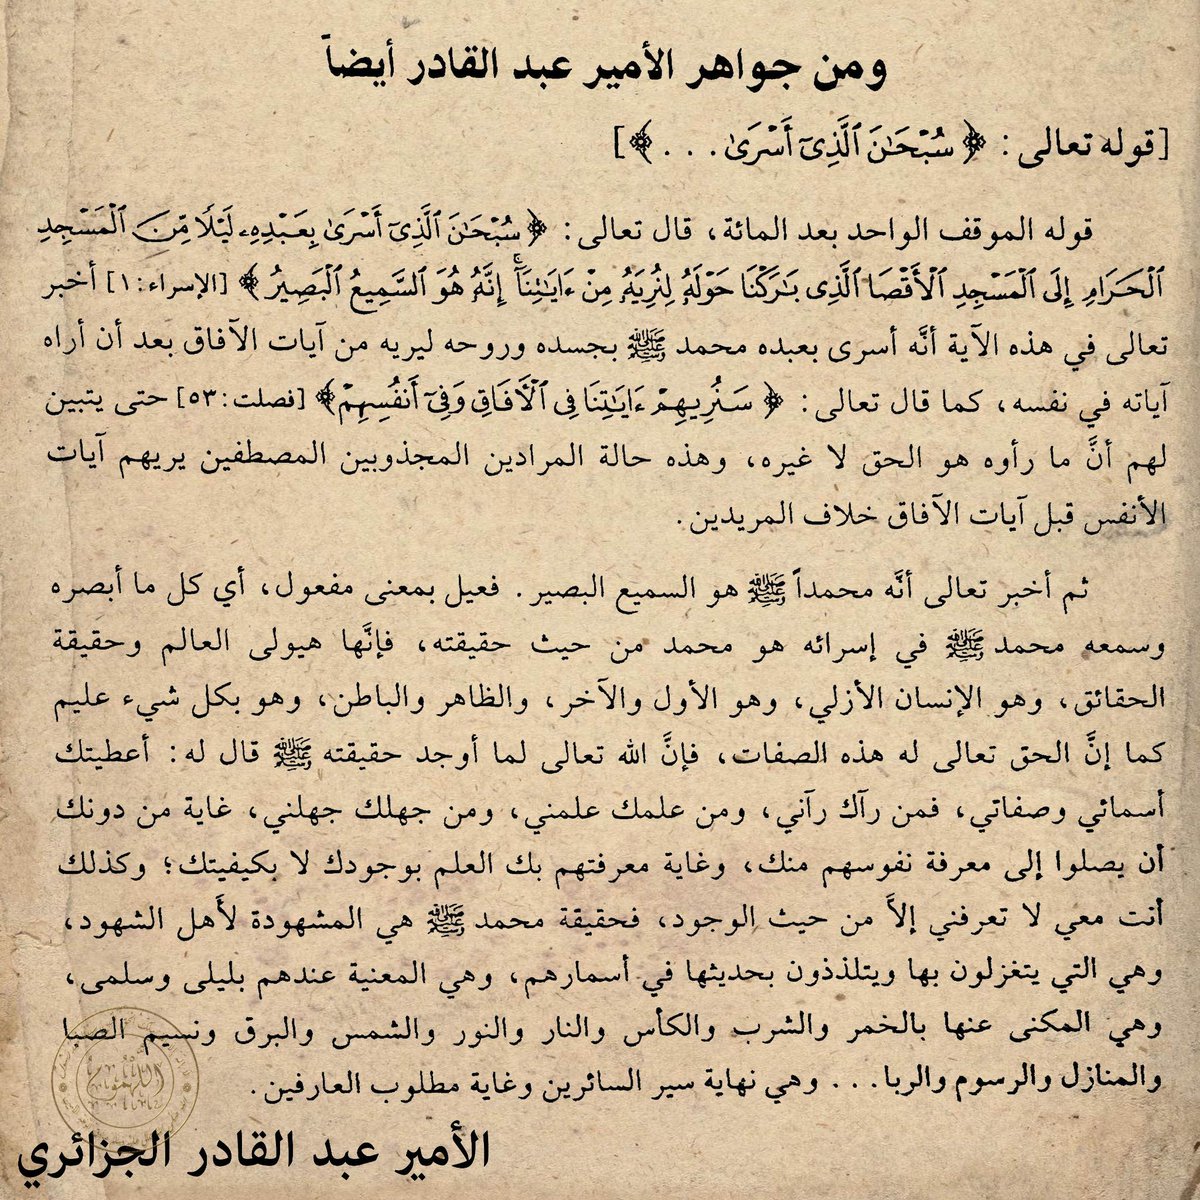 ومن جواهر الأمير عبد القادر أيضاً
[قوله تعالى: ﴿ سُبْحَٰنَ ٱلَّذِىٓ أَسْرَىٰ . . . ﴾]
قوله الموقف الواحد بعد المائة، قال تعالى: ﴿ سُبْحَٰنَ ٱلَّذِىٓ أَسْرَىٰ بِعَبْدِهِۦ لَيْلًا مِّنَ ٱلْمَسْجِدِ
ٱلْحَرَامِ إِلَى ٱلْمَسْجِدِ ٱلْأَقْصَا ٱلَّذِى بَٰرَكْنَا حَوْلَهُۥ لِنُرِيَهُۥ مِنْ ءَايَٰتِنَآ ۚ إِنَّهُۥ هُوَ ٱلسَّمِيعُ ٱلْبَصِيرُ ﴾ [الإسراء: ١] أخبر
تعالى في هذه الآية أنَّه أسرى بعبده محمد ﷺ بجسده وروحه ليريه من آيات الآفاق بعد أن أراه
آياته في نفسه، كما قال تعالى: ﴿ سَنُرِيهِمْ ءَايَٰتِنَا فِى ٱلْأَفَاقِ وَفِىٓ أَنفُسِهِمْ ﴾ [فصلت: ٥٣] حتى يتبين
لهم أنَّ ما رأوه هو الحق لا غيره، وهذه حالة المرادين المجذوبين المصطفين يريهم آيات
الأنفس قبل آيات الآفاق خلاف المريدين.
ثم أخبر تعالى أنَّه محمداً ﷺ هو السميع البصير. فعيل بمعنى مفعول، أي كل ما أبصره
وسمعه محمد ﷺ في إسرائه هو محمد من حيث حقيقته، فإنَّها هيولى العالم وحقيقة
الحقائق، وهو الإنسان الأزلي، وهو الأول والآخر، والظاهر والباطن، وهو بكل شيء عليم
كما إنَّ الحق تعالى له هذه الصفات، فإنَّ الله تعالى لما أوجد حقيقته ﷺ قال له: أعطيتك
أسمائي وصفاتي، فمن رآك رآني، ومن علمك علمني، ومن جهلك جهلني، غاية من دونك
أن يصلوا إلى معرفة نفوسهم منك، وغاية معرفتهم بك العلم بوجودك لا بكيفيتك؛ وكذلك
أنت معي لا تعرفني إلاَّ من حيث الوجود، فحقيقة محمد ﷺ هي المشهودة لأهل الشهود،
وهي التي يتغزلون بها ويتلذذون بحديثها في أسمارهم، وهي المعنية عندهم بليلى وسلمى،
وهي المكنى عنها بالخمر والشرب والكأس والنار والنور والشمس والبرق ونسيم الصبا
والمنازل والرسوم والربا. . . وهي نهاية سير السائرين وغاية مطلوب العارفين.
الأمير عبد القادر الجزائري